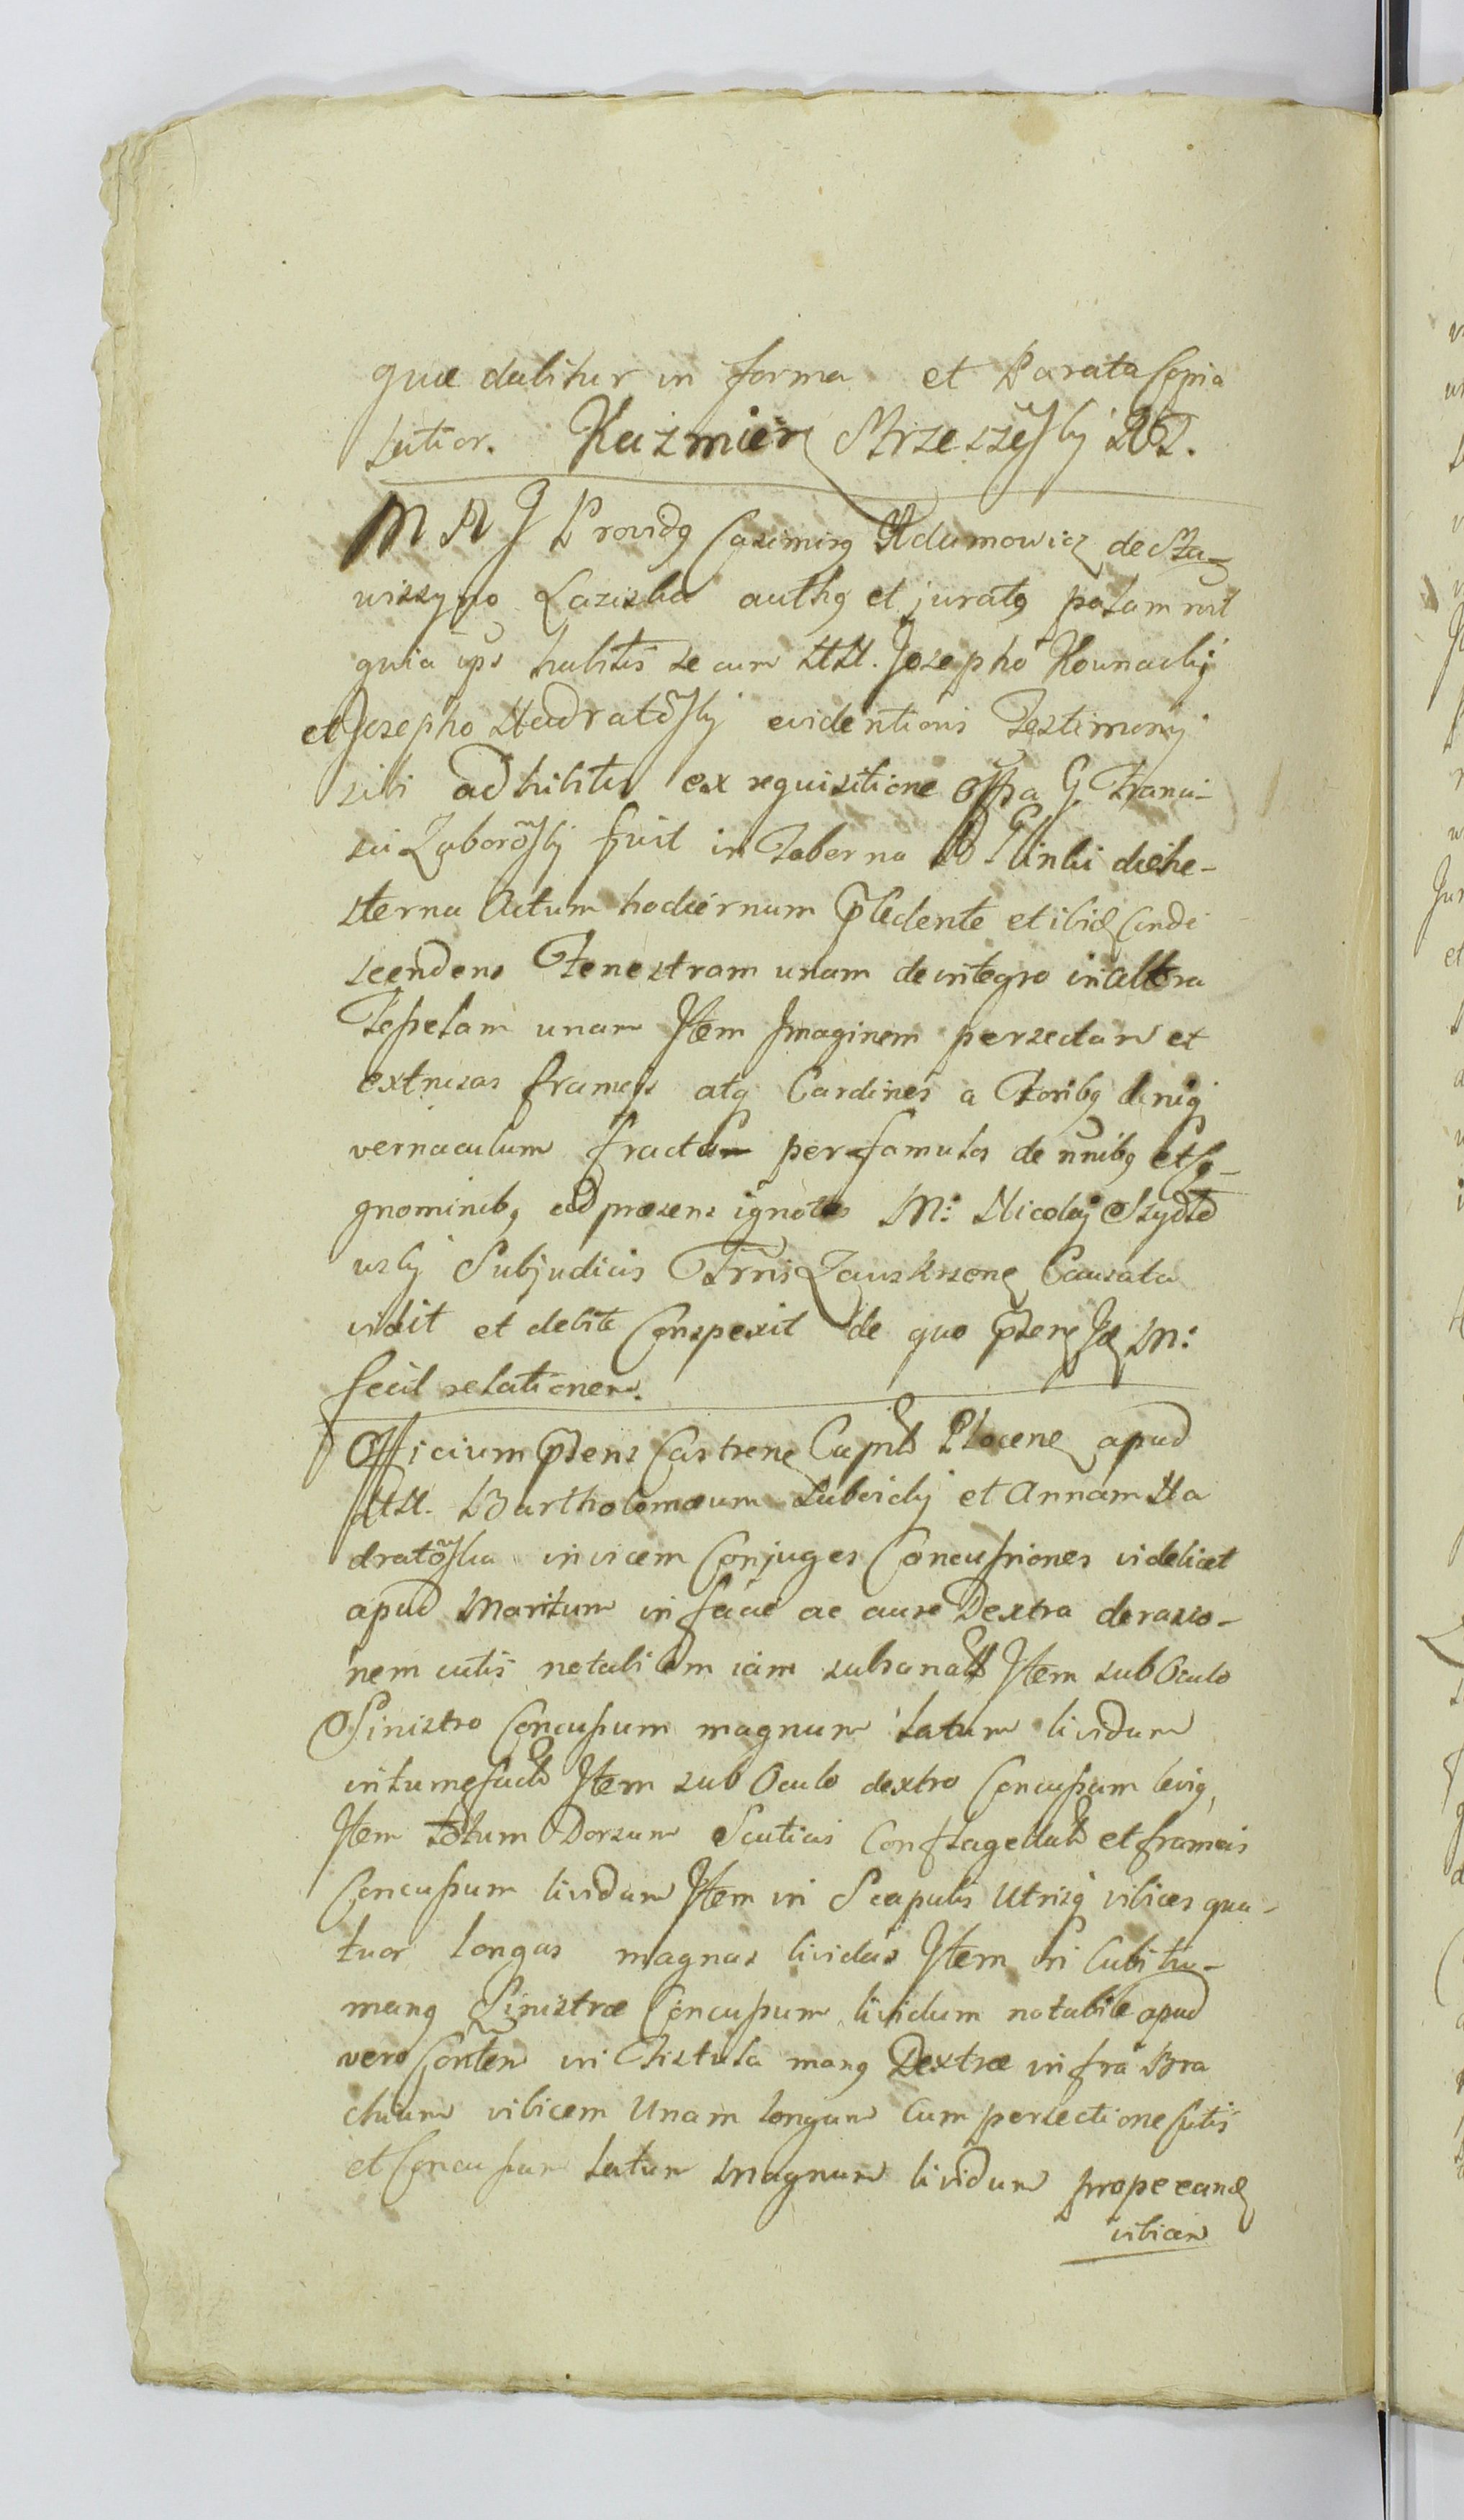 quæ dabitur in forma et Parata Copia
latior. Kaźmierz Strzeszẽsky
M R J Providq Casimirq Adamowicz de Sta-
wiszyno Laziska authq et juratq palam rec̃t
quia ip̃e habitis secum NN. Josepho Kownacky
et Josepho Nadratõsky evidentioris Testimonij
sibi adhibitis ex requisitione G. Franci-
sci Zaborõsky fuit in Taberna Glinki die he-
sterna Actum hodiernum p̃cedente et ibid Conde
scendens Fenestram unam de integro in altera
Tesselam unam Jtem Jmaginem persectam et
extrusas frameis atq Cardines a Foribq deniq
vernaculum fractum per famulos de nñibq et Co-
gnominibq ad præsens ignotos M: Nicolaj Szydło
wsky Subjudicis Tr̃ris Zawskrzenẽ Causata
vidit et debite Conspexit de quo p̃senẽ M:
fecit relationem.
Officium p̃sens Castrenẽ Capitlẽ Plocenẽ apud
NN. Bartholomæum Lubvicky et Annam Na
dratõska invicem Conjuges Concussiones videlicet
apud Maritum in facie ac aure Dextra derasio-
nem cutis notabilem iam subsanatã Jtem sub Oculo
Sinistro Concussum magnum latum lividum
intumefactũ Jtem sub Oculo dextro Concussum leviq,
Jtem totum Dorsum Scuticis Conflagellatũ et frameis
Concussum lividum Jtem in Scapulis Utrisq vibices qua-
tuor longas magnas lividas Jtem in Cubitu-
manq Sinistræ Concussum lividum notabile apud
vero Consortem in Fistula manq Dextræ infra Bra
chium vibicem Unam longam Cum persectione Cutis
et Concussum latum magnum lividum prope eand
vibicem